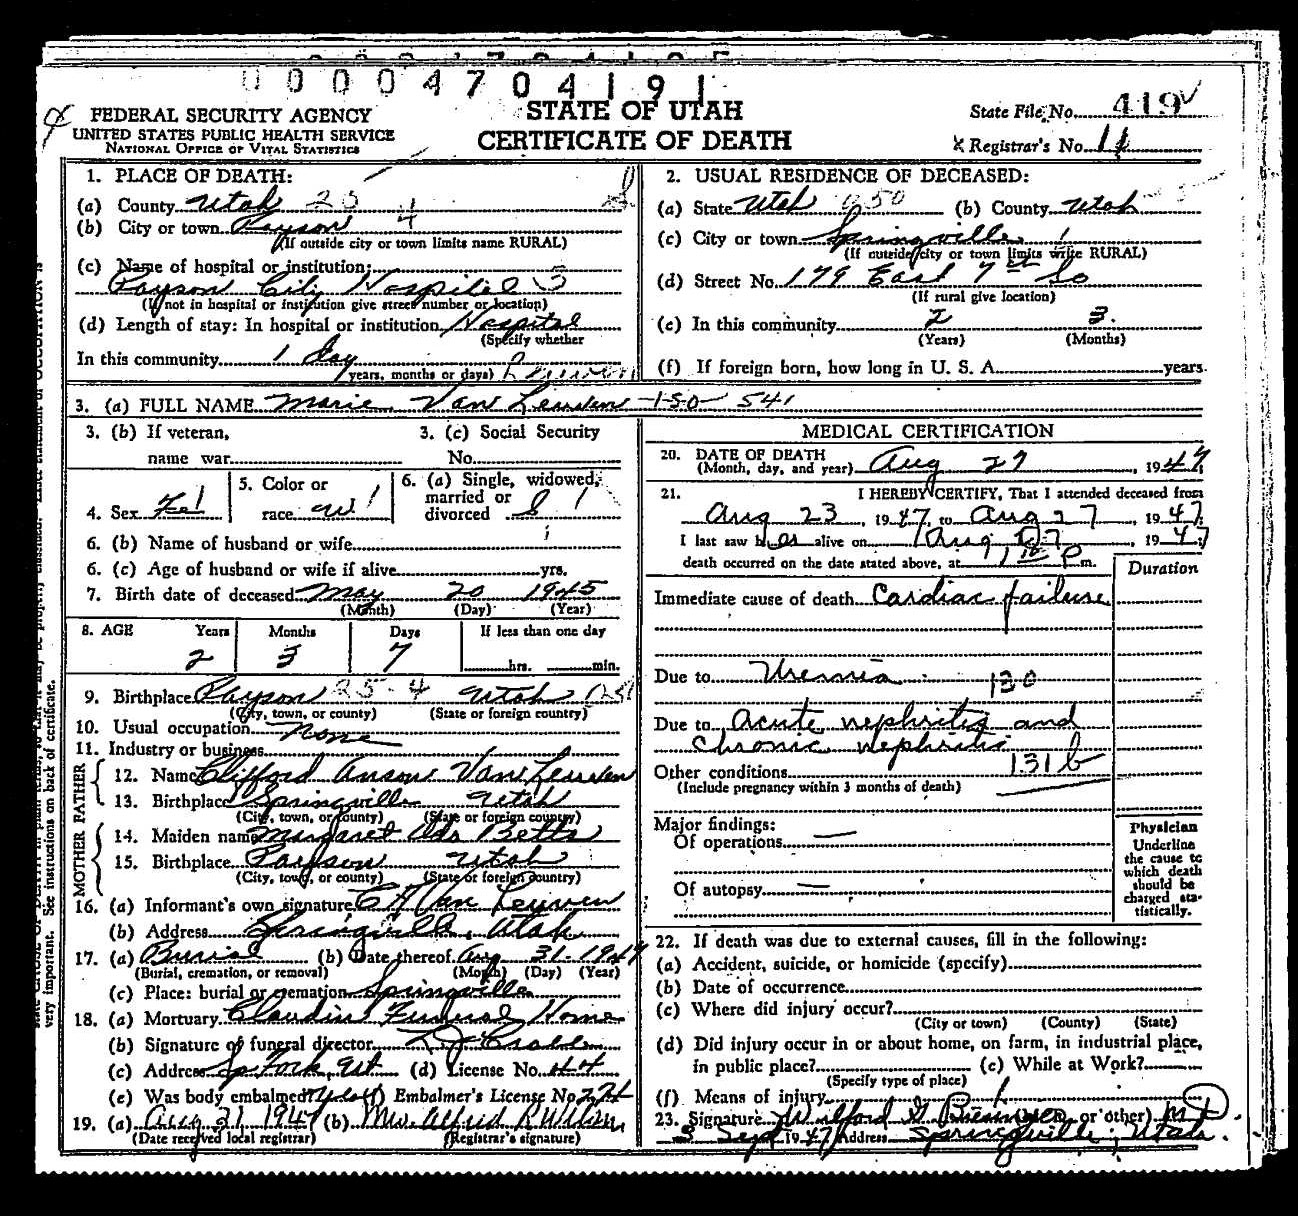 00004704191
FEDERAL SECURITY AGENCY
UNITED STATES PUBLIC HEALTH SERVICE
NATIONAL OFFICE OF VITAL STATISTICS
STATE OF UTAH
CERTIFICATE OF DEATH
State File No. 419
Registrar's No. 11
1. PLACE OF DEATH:
(a) County Utah 25
(b) City or town Payson 4
(If outside city or town limits name RURAL)
(c) Name of hospital or institution:
Payson City Hospital
(If not in hospital or institution give street number or location)
(d) Length of stay: In hospital or institution Hospital
(Specify whether
In this community 1 day
years, months or days)
2. USUAL RESIDENCE OF DECEASED:
(a) State Utah 250 (b) County Utah
(c) City or town Springville 1
(If outside city or town limits write RURAL)
(d) Street No. 179 East 7th So
(If rural give location)
(e) In this community 2 3
(Years) (Months)
(f) If foreign born, how long in U. S. A. years
3. (a) FULL NAME Marie Van Leuven 150 541
3. (b) If veteran, name war
3. (c) Social Security No.
4. Sex Fe 1
5. Color or race W 1
6. (a) Single, widowed, married or divorced S 1
6. (b) Name of husband or wife
6. (c) Age of husband or wife if alive yrs.
7. Birth date of deceased May 20 1945
(Month) (Day) (Year)
8. AGE Years Months Days If less than one day
2 3 7 hrs. min.
9. Birthplace Payson 25-4 Utah
(City, town, or county) (State or foreign country)
10. Usual occupation None
11. Industry or business
FATHER
12. Name Clifford Anson Van Leuven
13. Birthplace Springville Utah
(City, town, or county) (State or foreign country)
MOTHER
14. Maiden name Margaret Ada Betts
15. Birthplace Payson Utah
(City, town, or county) (State or foreign country)
16. (a) Informant's own signature C A Van Leuven
(b) Address Springville, Utah
17. (a) Burial (b) Date thereof Aug 31. 1947
(Burial, cremation, or removal) (Month) (Day) (Year)
(c) Place: burial or cremation Springville
18. (a) Mortuary Claudin Funeral Home
(b) Signature of funeral director
(c) Address Sp Fork, Ut (d) License No. 44
(e) Was body embalmed? Embalmer's License No. 224
19. (a) Aug 31 1947 (b) Mrs. Alfred R Wilson
(Date received local registrar) (Registrar's signature)
MEDICAL CERTIFICATION
20. DATE OF DEATH
(Month, day, and year) Aug 27, 1947
21. I HEREBY CERTIFY, That I attended deceased from
Aug 23, 1947, to Aug 27, 1947
I last saw her alive on Aug 27 1947
death occurred on the date stated above, at P m.
Duration
Immediate cause of death Cardiac failure
Due to Uremia 130
Due to acute nephritis and
chronic nephritis
131b
Other conditions
(Include pregnancy within 3 months of death)
Major findings:
Of operations —
Of autopsy —
Physician
Underline
the cause to
which death
should be
charged sta-
tistically.
22. If death was due to external causes, fill in the following:
(a) Accident, suicide, or homicide (specify)
(b) Date of occurrence
(c) Where did injury occur?
(City or town) (County) (State)
(d) Did injury occur in or about home, on farm, in industrial place,
in public place? (e) While at Work?
(Specify type of place)
(f) Means of injury
23. Signature Wilford G or other) M D.
3 Sept 1947 Address Springville, Utah.
very important. See instructions on back of certificate.